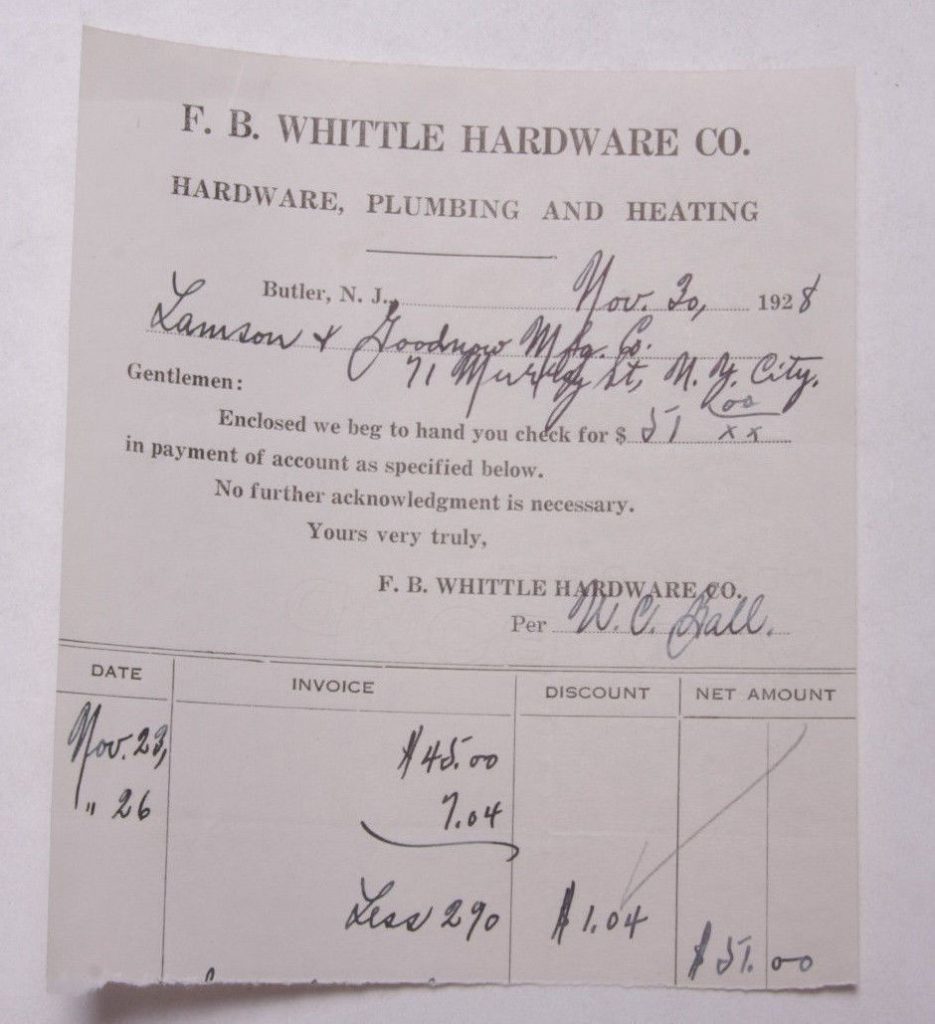 F. B. WHITTLE HARDWARE CO.
HARDWARE, PLUMBING AND HEATING
Butler, N. J., Nov. 30, 1928
Lamson & Goodnow Mfg. Co.
71 Murray St, N. Y. City.
Gentlemen:
Enclosed we beg to hand you check for $ 51 00/xx
in payment of account as specified below.
No further acknowledgment is necessary.
Yours very truly,
F. B. WHITTLE HARDWARE CO.
Per W. C. Hall.
DATE INVOICE DISCOUNT NET AMOUNT
Nov. 23, $45.00
" 26 7.04
Less 2% $1.04
$51.00